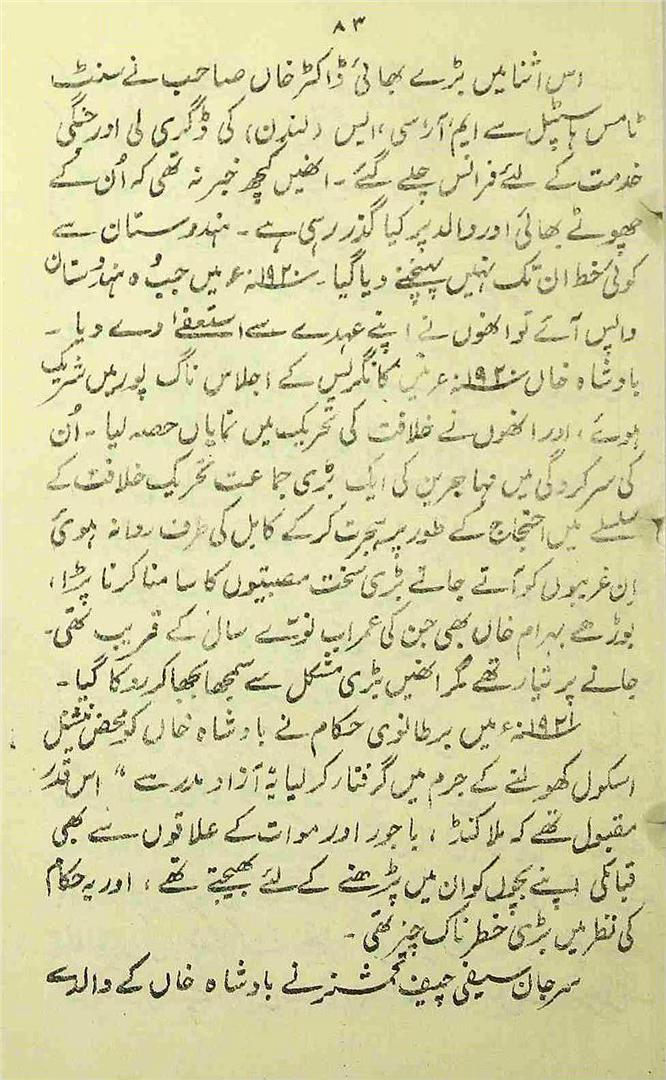 ۸۳
اس اثنا میں بڑے بھائی ڈاکٹر خاں صاحب نے سنٹ
ٹامس ہاسپٹل سے ایم، آر، سی، ایس (لندن) کی ڈگری لی اور جنگی
خدمت کے لئے فرانس چلے گئے۔ انھیں کچھ خبر نہ تھی کہ اُن کے
چھوٹے بھائی اور والد پر کیا گذر رہی ہے۔ ہندوستان سے
کوئی خط ان تک نہیں پہنچنے دیا گیا۔ ۱۹۲۰ء میں جب وُہ ہندوستان
واپس آئے تو انھوں نے اپنے عہدے سے استعفےٰ دے دیا۔
بادشاہ خاں ۱۹۲۰ء میں کانگریس کے اجلاس ناگ پور میں شریک
ہوئے، اور انھوں نے خلافت کی تحریک میں نمایاں حصہ لیا۔ اُن
کی سرکردگی میں مہاجرین کی ایک بڑی جماعت تحریک خلافت کے
سلسلے میں احتجاج کے طور پر ہجرت کرکے کابل کی طرف روانہ ہوئی
اِن غریبوں کو آتے جاتے بڑی سخت مصیبتوں کا سامنا کرنا پڑا،
بوڑھے بہرام خاں بھی جن کی عمر اب نوّے سال کے قریب تھی۔
جانے پر تیار تھے مگر انھیں بڑی مشکل سے سمجھا بجھا کر روکا گیا۔
۱۹۲۱ء میں برطانوی حکام نے بادشاہ خاں کو محض نیشنل
اسکول کھولنے کے جرم میں گرفتار کر لیا یہ آزاد مدرسے " اس قدر
مقبول تھے کہ ملاکنڈ، باجور اور موات کے علاقوں سے بھی
قبائلی اپنے بچوں کو ان میں پڑھنے کے لئے بھیجتے تھے، اور یہ حکام
کی نظر میں بڑی خطرناک چیز تھی۔
سر جان سیفی چیف کمشنر نے بادشاہ خاں کے والد سے